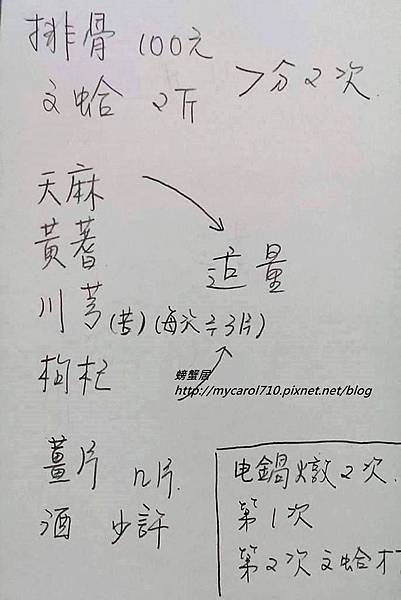 排骨 100元
文蛤 2斤 >分2次
天麻
黃耆
川芎(苦)(每次2~3片)
枸杞
適量
螃蟹居
http://mycarol710.pixnet.net/blog
薑片 n片.
酒 少許
电鍋燉2次.
第1次
第2次文蛤才